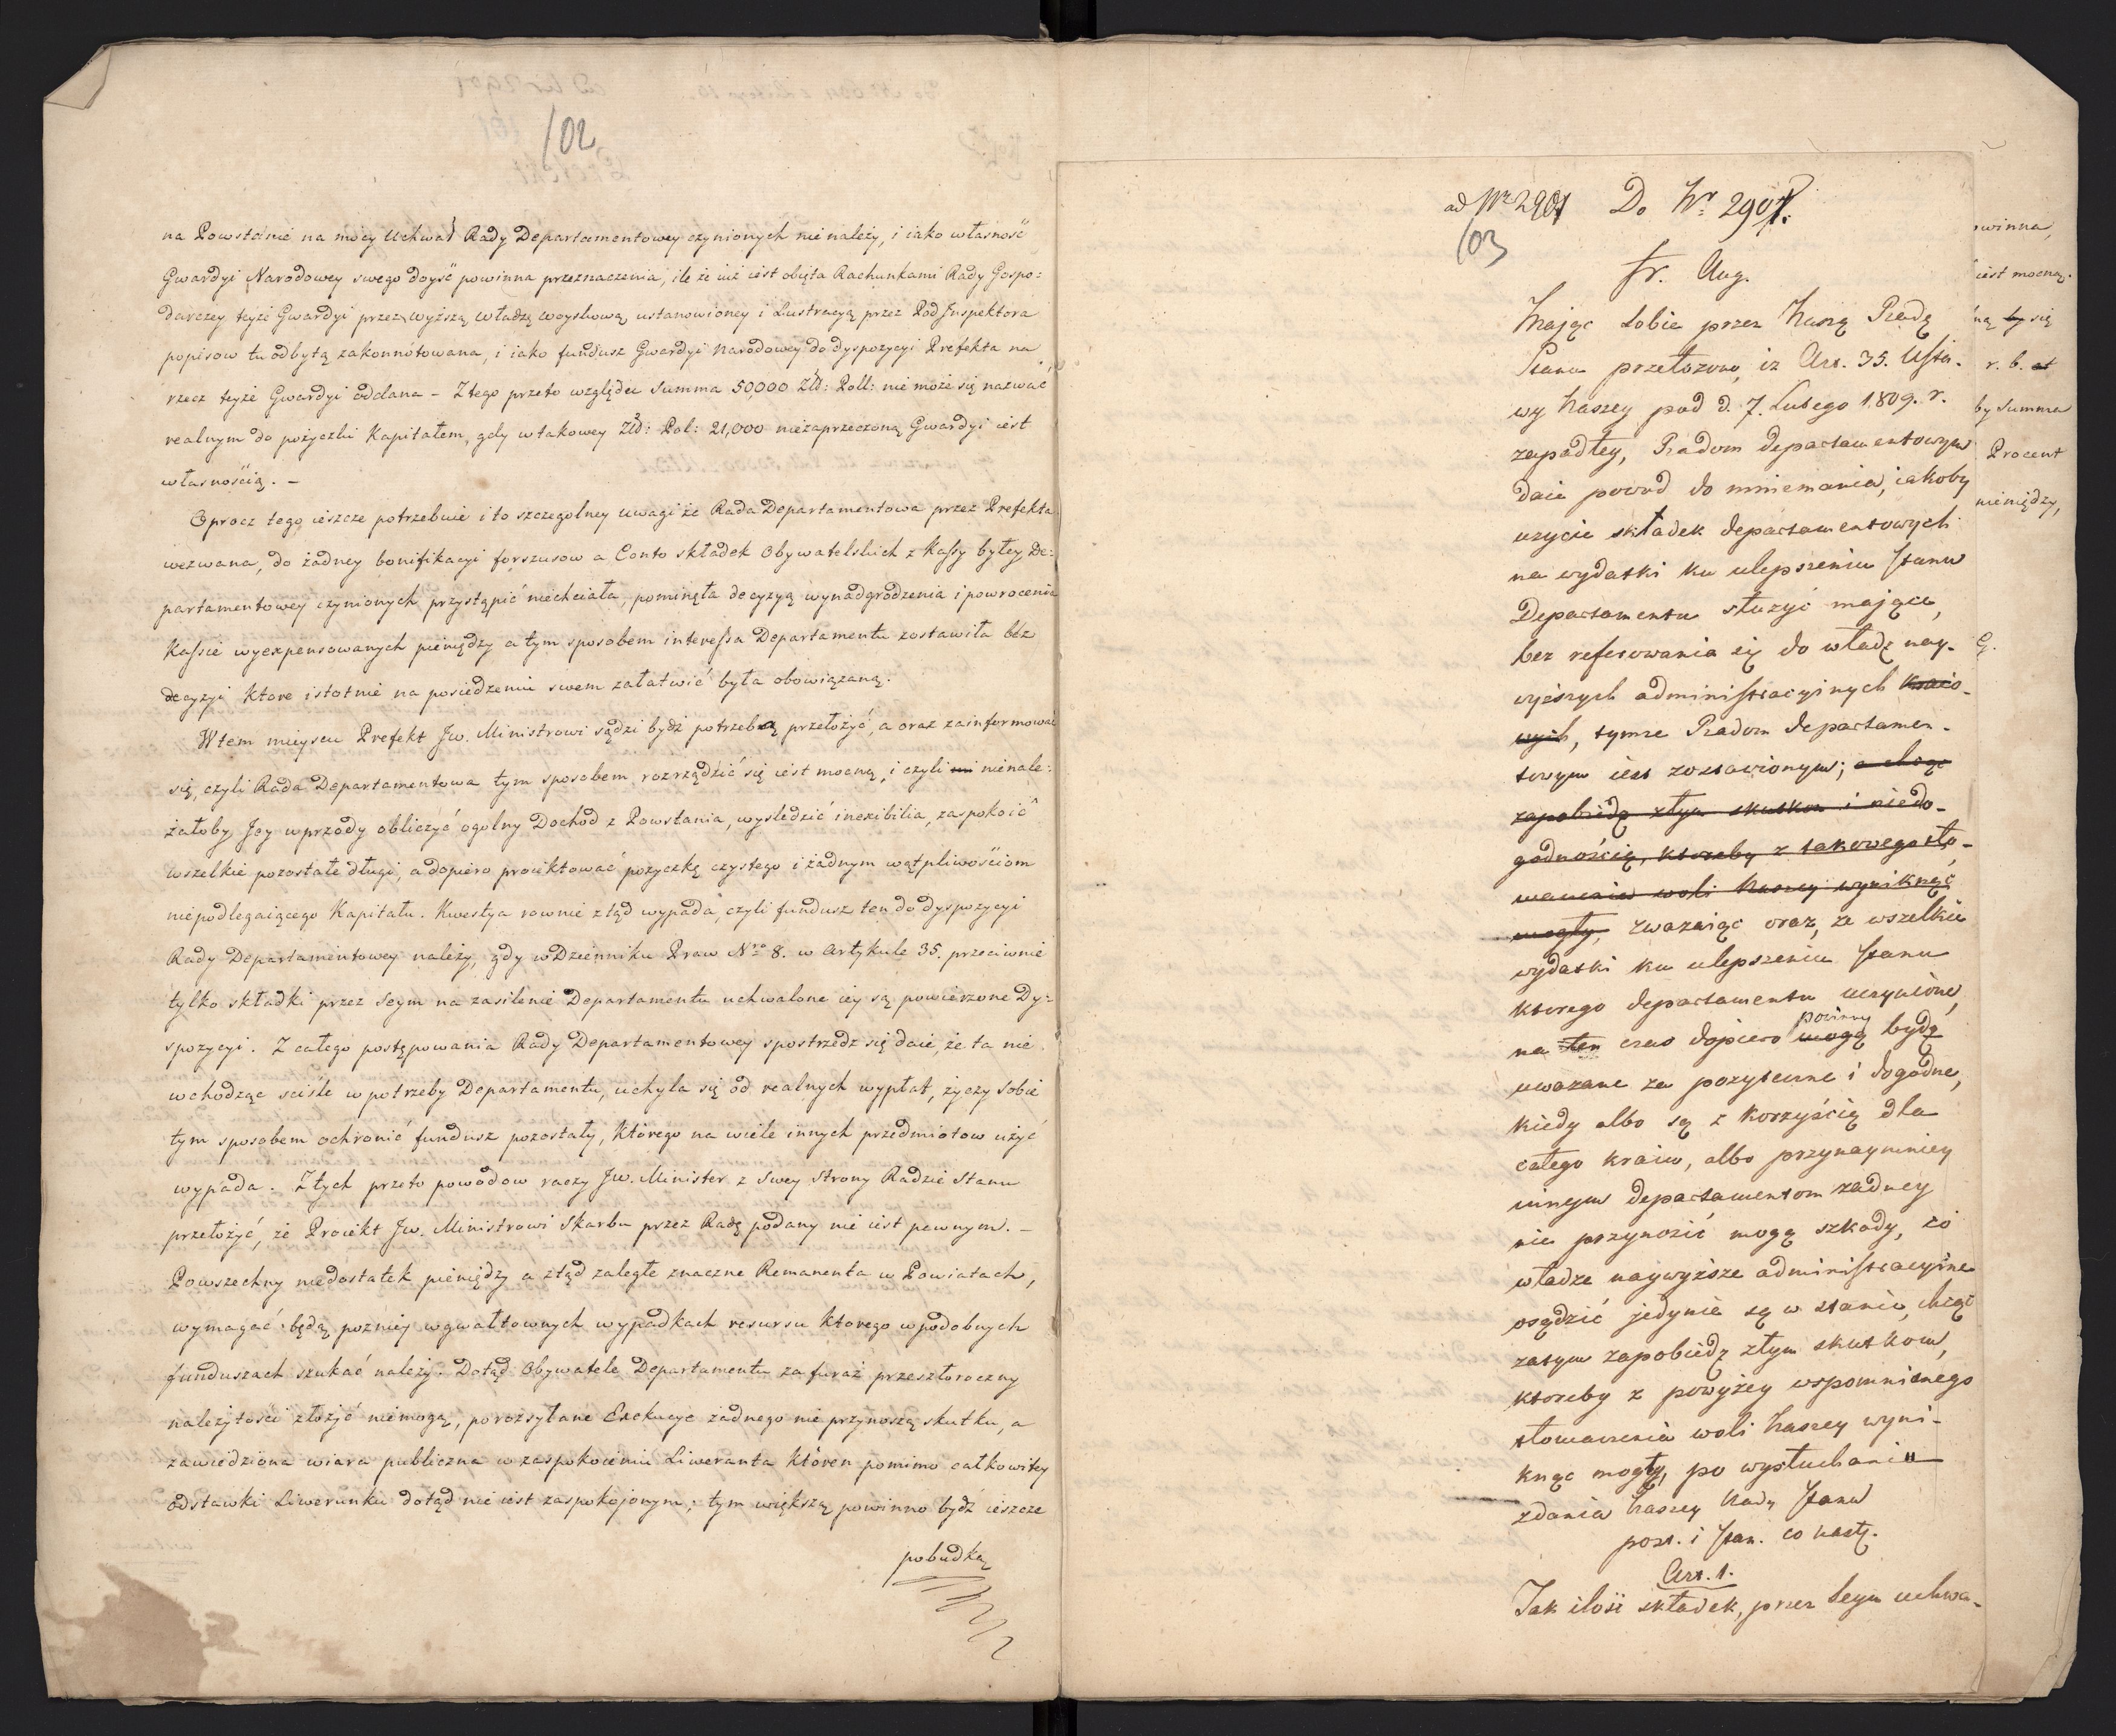 102
na Powstanie na mocy Uchwał Rady Departamentowey czynionych nie należy, i iako własność
Gwardyi Narodowey swego doyść powinna przeznaczenia, ile że iuż iest obięta Rachunkami Rady Gospo:
darczey teyże Gwardyi przez wyższą władzę woyskową ustanowioney i Lustracyą przez Pod Inspektora
popisow tu odbytą zakonnotowana, i iako fundusz Gwardyi Narodowey do dyspozycyi Prefekta na
rzecz teyże Gwardyi oddana – Z tego przeto względu Summa 50,000 Złł: Poll: nie może się nazwać
realnym do pożyczki Kapitałem, gdy w takowey Złł: Pol: 21,000 niezaprzeczoną Gwardyi iest
własnością. –
Oprocz tego ieszcze potrzebuie i to szczegolney uwagi że Rada Departamentowa przez Prefekta
wezwana, do żadney bonifikacyi forszusow a Conto składek Obywatelskich z Kassy byłey De:
partamentowey czynionych przystąpić niechciała, pominęła decyzyą wynadgrodzenia i powrocenia
Kassie wyexpensowanych pieniędzy a tym sposobem interessa Departamentu zostawiła bez
decyzyi Ktore istotnie na posiedzeniu swem załatwić była obowiązaną.
W tem mieyscu Prefekt Jw. Ministrowi sądzi bydź potrzebą przełożyć, a oraz zainformować
się, czyli Rada Departamentowa tym sposobem rozrządzić się iest mocną, i czyli nienale:
żałoby Jey wprzody obliczyć ogolny Dochod z Powstania, wysledzić inexibilia, zaspokoić
wszelkie pozostałe długi, a dopiero proiektować pożyczkę czystego i żadnym wątpliwościom
niepodlegaiącego Kapitału. Kwestya rownie ztąd wypada, czyli fundusz ten do dyspozycyi
Rady Departamentowey należy, gdy w Dzienniku Praw Nro 8. w Artykule 35. przeciwnie
tylko składki przez Seym na zasilenie Departamentu uchwalone iey są powierzone Dy:
spozycyi. Z całego postępowania Rady Departamentowey spostrzedz się daie, że ta nie
wchodząc sciśle w potrzeby Departamentu, uchyla się od realnych wypłat, życzy sobie
tym sposobem ochronić fundusz pozostały, Którego na wiele innych przedmiotow użyć
wypada. Z tych przeto powodow raczy Jw. Minister z swey strony Radzie Stanu
przełożyć, że Proiekt Jw. Ministrowi Skarbu przez Radę podany nie iest pewnym. –
Powszechny niedostatek pieniędzy a ztąd zaległe znaczne Remanenta w Powiatach,
wymagać będą pozniey w gwałtownych wypadkach resursu Ktorego w podobnych
funduszach szukać należy. Dotąd Obywatele Departamentu za furaż przeszłoroczny
należytości złożyć niemogą, porozsyłane Exekucye żadnego nie przynoszą skutku, a
zawiedziona wiara publiczna w zaspokoieniu Liweranta Któren pomimo całkowitey
odstawki Liwerunku dotąd nie iest zaspokojonym, tym większą powinno bydź ieszcze
pobudką
ad Nr 2901 Do Nr. 2901.
103
Fr. Aug.
Mając sobie przez Naszą Radę
Stanu przełożono, iż Art. 35. Usta-
wy Naszey pod d. 7. Lutego 1809. r.
zapadłey, Radom departamentowym
daie powod do mniemania, iakoby
użycie składek departamentowych
na wydatki ku ulepszeniu Stanu
Departamentu służyć mające,
bez referowania się do władz nay-
wyższych administracyinych kraio-
wych, tymże Radom departamen-
towym iest zostawionym; a chcąc
zapobiedz złym skutkom i niedo-
godnością, ktoreby z takowego tło-
maczenia woli Naszey wyniknąć
mogły, zważaiąc oraz, że wszelkie
wydatki ku ulepszeniu Stanu
ktorego departamentu uczynione,
powinny
na ten czas dopiero mogą bydź
uważane za pożyteczne i dogodne,
kiedy albo są z korzyścią dla
całego kraiu, albo przynaymniey
innym departamentom żadney
nie przynosić mogą szkody, co
władze naywyższe administracyine
osądzić jedynie są w stanie, chcąc
zatym zapobiedz złym skutkom,
ktoreby z powyżey wspomnionego
tłomaczenia woli Naszey wyni-
knąć mogły, po wysłuchaniu
zdania Naszey Rady Stanu
post. i stan. co nastę.
Art. 1.
Jak ilość składek, przez Seym uchwa-
owinna,
iest mocną.
się
r. b.
by Summa
Procent
nieniędzy,